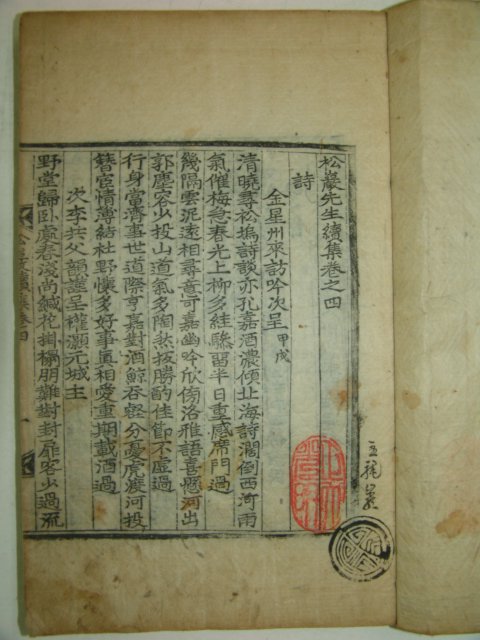 松巖先生續集卷之四
詩
金星州來訪吟次呈 甲戌
清曉尋松塢詩談亦孔嘉酒濃傾北海詩濶倒西河雨
氣催梅急春光上柳多蛙驂留半日重感席門過
幾隔雲泥遠相尋意可嘉幽吟欣傍洛雅語喜懸河出
郭塵容少投山道氣多陶然拔勝酌佳節不虛過
行身當濟事世道際亨嘉對酒鯨吞壑分憂虎渡河投
簪宦情薄結社野懷多好事氣相愛重期載酒過
次李共父韻謹呈權灝元城主
野堂歸臥處春淺尚緘花掛榻朋難對封扉客少過流